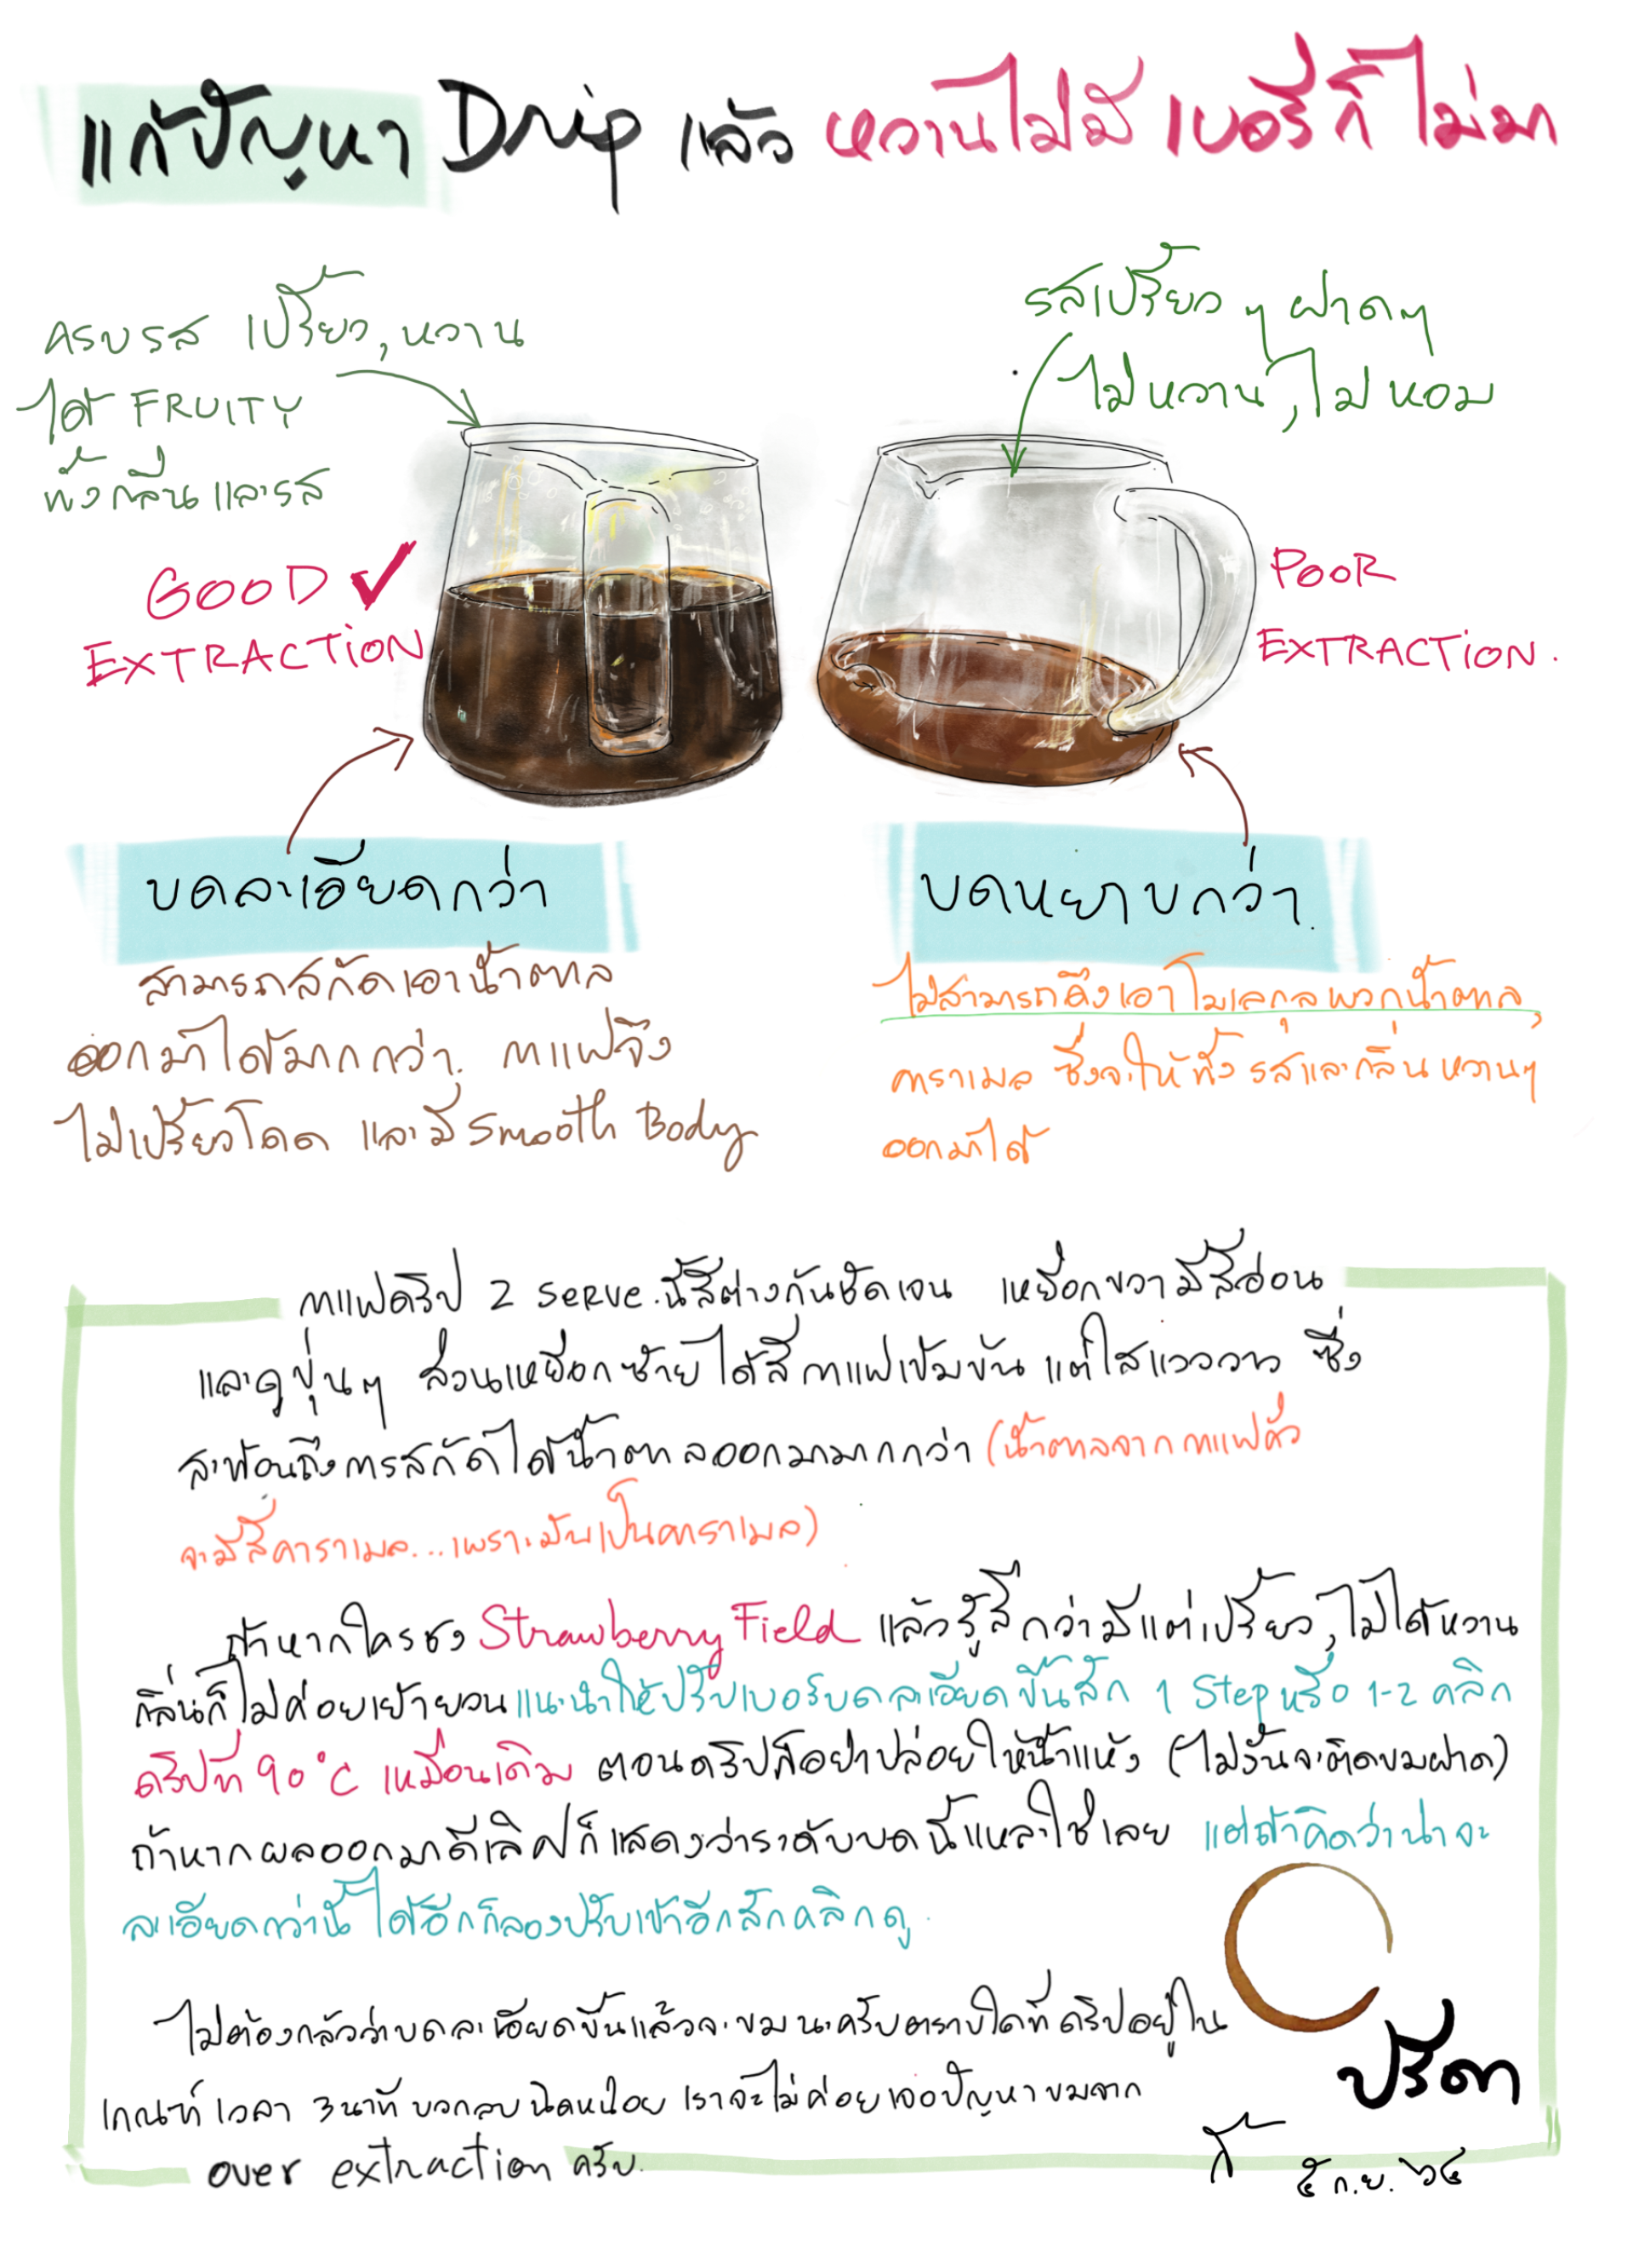 แก้ปัญหา Drip แล้ว หวานไม่มี เบอรี่ก็ไม่มา
ครบรส เปรี้ยว, หวาน
ได้ FRUITY
ทั้งกลิ่นและรส
GOOD ✓
EXTRACTION
รสเปรี้ยวๆ ฝาดๆ
ไม่หวาน, ไม่หอม
POOR
EXTRACTION.
บดละเอียดกว่า
สามารถสกัดเอาน้ำตาล
ออกมาได้มากกว่า. กาแฟจึง
ไม่เปรี้ยวโดด และมี Smooth Body
บดหยาบกว่า.
ไม่สามารถดึงเอาโมเลกุลพวกน้ำตาล,
คาราเมล ซึ่งจะให้ทั้ง รสและกลิ่น หวานๆ
ออกมาได้
กาแฟดริป 2 serve.นี้สีต่างกันชัดเจน เหยือกขวามีสีอ่อน
และดูขุ่นๆ ส่วนเหยือกซ้ายได้สีกาแฟเข้มข้น แต่ใสแวววาว ซึ่ง
สะท้อนถึงการสกัดได้น้ำตาลออกมามากกว่า (น้ำตาลจากกาแฟคั่ว
จะมีสีคาราเมล...เพราะมันเป็นคาราเมล)
ถ้าหากใครชง Strawberry Field แล้วรู้สึกว่ามีแต่เปรี้ยว, ไม่ได้หวาน
กลิ่นก็ไม่ค่อยเย้ายวนแนะนำให้ปรับเบอร์บดละเอียดขึ้นสัก 1 Step หรือ 1-2 คลิก
ดริปที่ 90°C เหมือนเดิม ตอนดริปก็อย่าปล่อยให้น้ำแห้ง (ไม่งั้นจะติดขมฝาด)
ถ้าหากผลออกมาดีเลิศก็แสดงว่าระดับบดนี้แหละใช่เลย แต่ถ้าคิดว่าน่าจะ
ละเอียดกว่านี้ได้อีกก็ลองปรับเข้าอีกสักคลิกดู.
ไม่ต้องกลัวว่าบดละเอียดขึ้นแล้วจะขมนะครับตราบใดที่ดริปอยู่ใน
เกณฑ์ เวลา 3 นาที บวกลบนิดหน่อย เราจะไม่ค่อยเจอปัญหาขมจาก
over extraction ครับ.
ปรีดา
ก้
๕ ก.ย. ๖๔